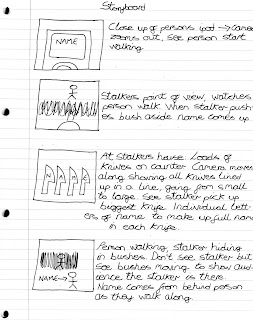 Storyboard
Close up of persons ipod → Camera
zooms out, see person start
walking
NAME
Stalkers point of view, watches
person walk When stalker push-
es bush aside name comes up.
At stalkers house. Loads of
knives on counter. Camera moves
along showing all knives lined
up in a line, going from small
to large. See stalker pick up
biggest knife. Individual lett-
ers of name to make up full name
in each knife.
N A M E
Person walking, stalker hiding
in bushes. Don't see stalker but
see bushes moving to show aud-
ience the stalker is there.
Name comes from behind person
as they walk along.
NAME→